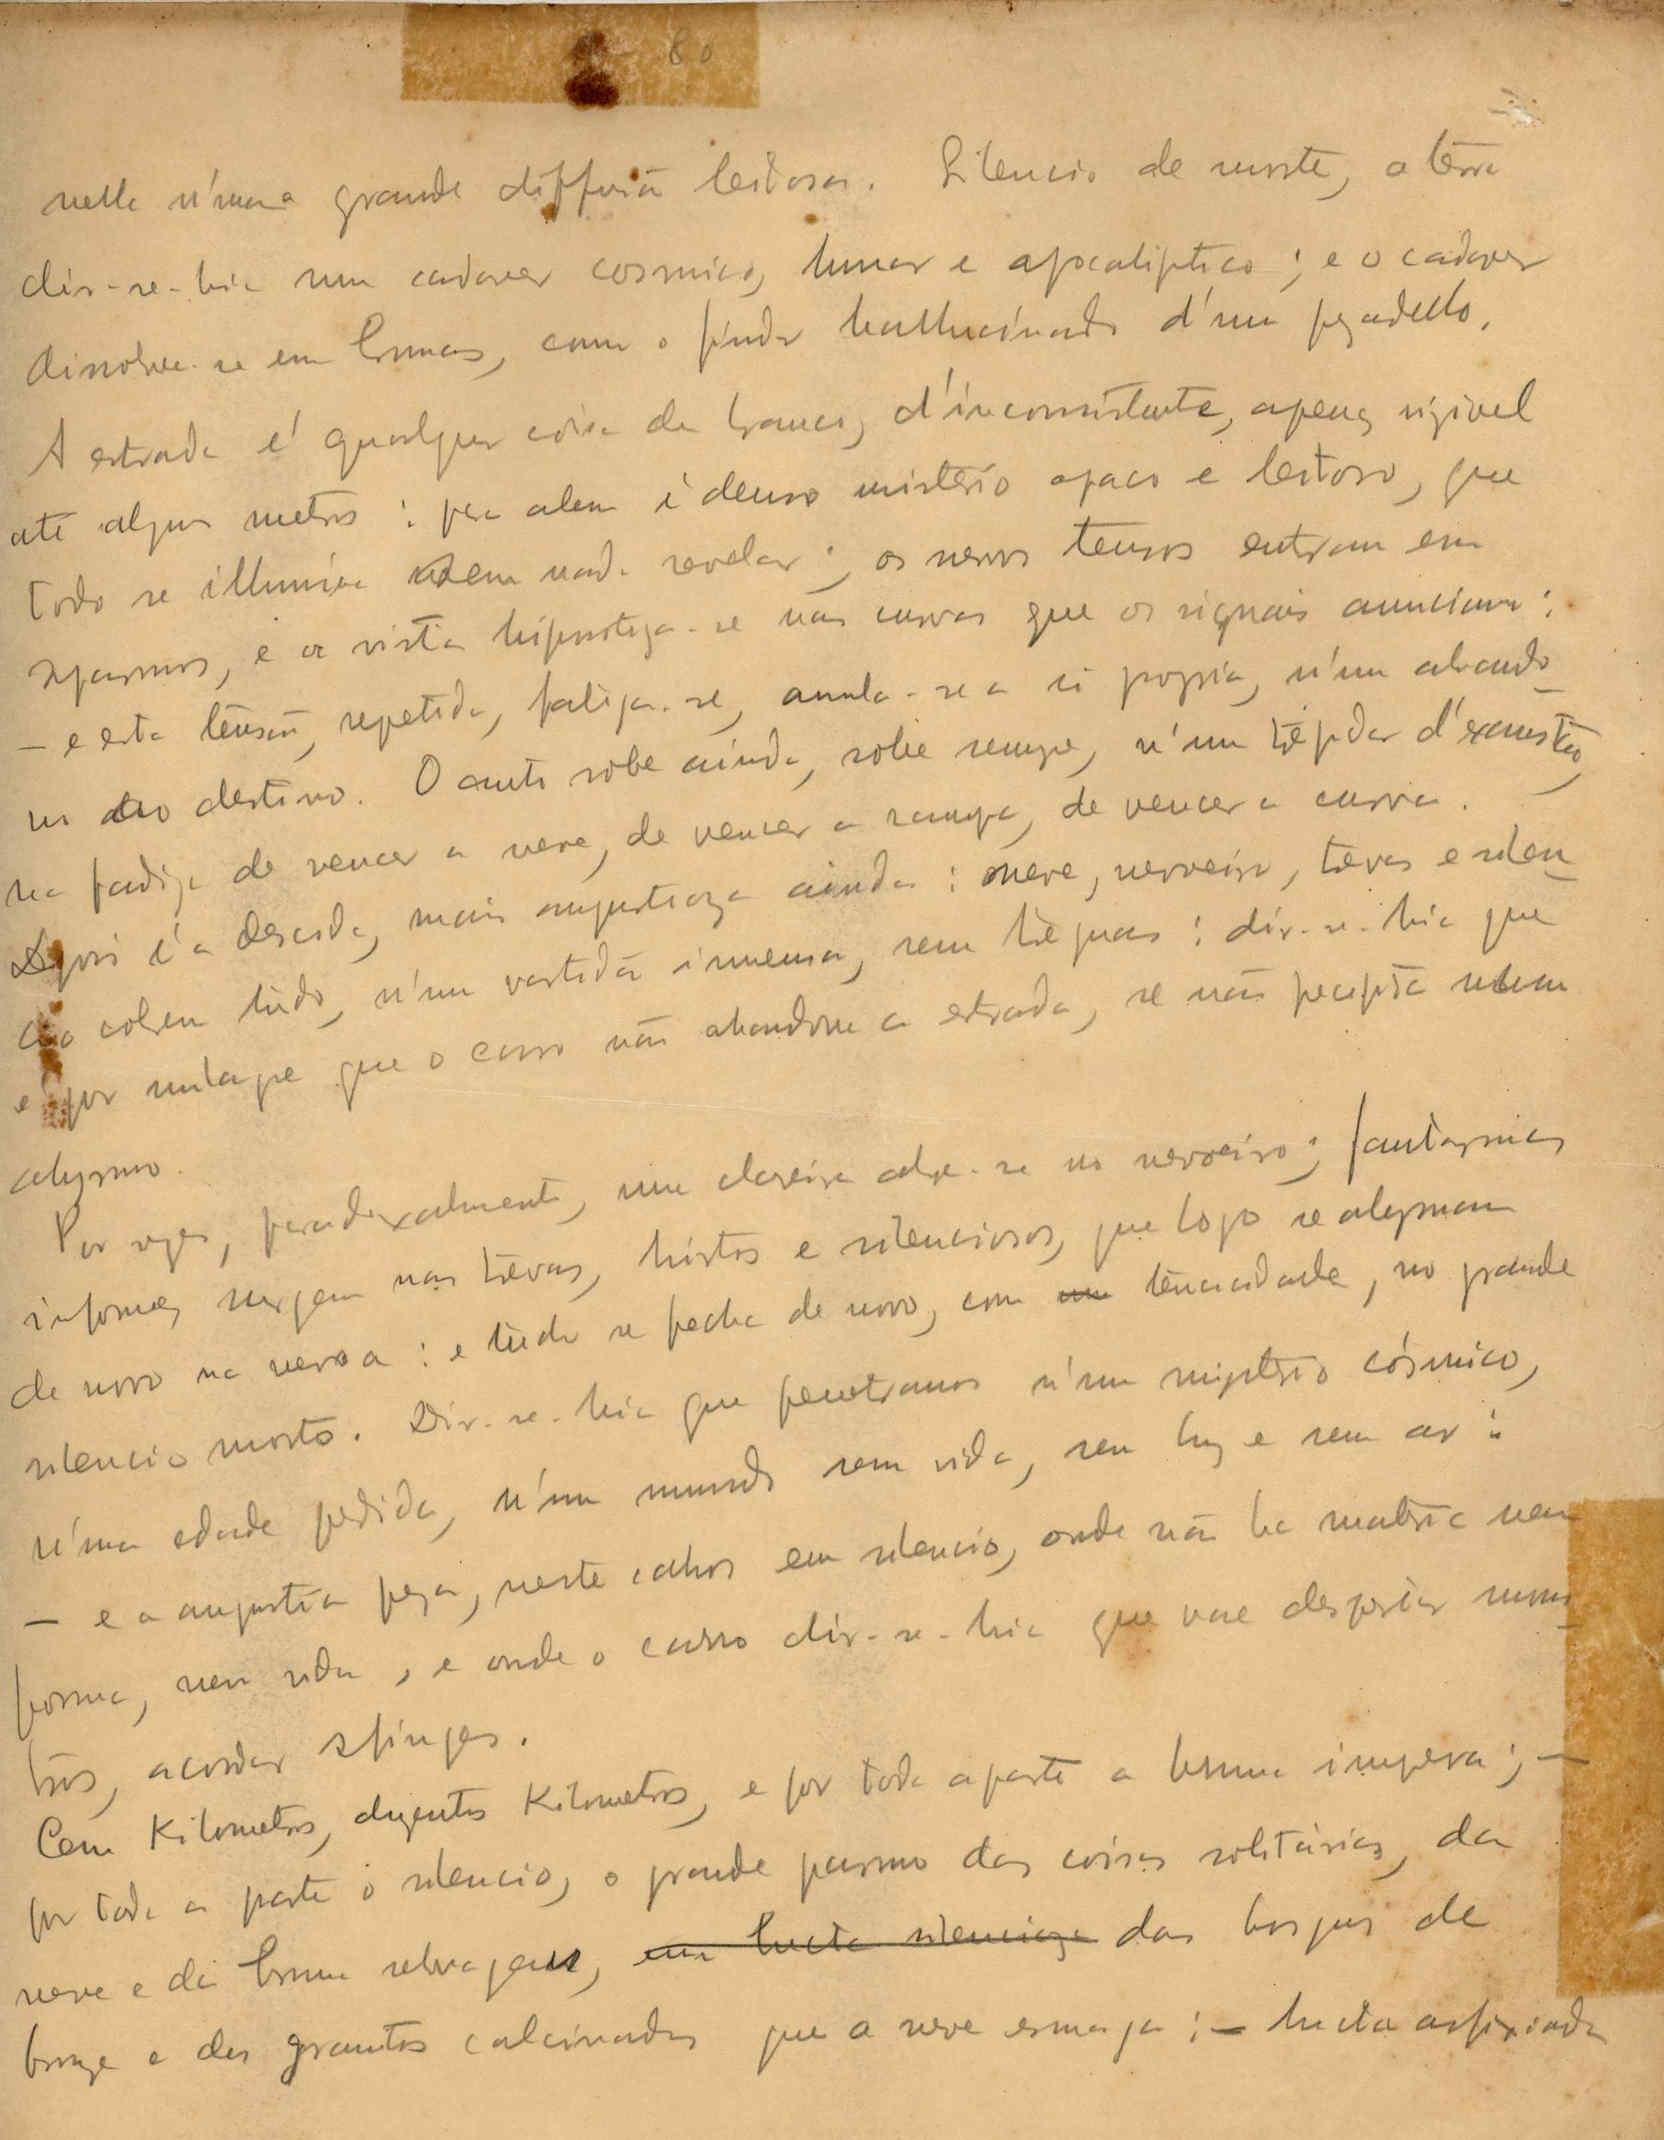 60
nella n'uma grande diffusão leitosa. Silencio de morte, a terra
dir-se-hia um cadaver cosmico, lunar e apocaliptico; e o cadaver
dissolve-se em brumas, como o findar hallucinado d'um pezadello.
A estrada é qualquer coisa de branco, d'inconsistente, apenas vizivel
até alguns metros: para alem é denso misterio opaco e leitoso, que
todo se illumina sem nada revelar; os nervos tensos entram em
espasmos, e a vista hipnotiza-se nas curvas que os signais anunciam:
– e esta tensão, repetida, fatiga-se, anula-se a si propria, n'um abando-
no ao destino. O auto sobe ainda, sobe sempre, n'um trepidar d'exaustão,
na fadiga de vencer a neve, de vencer a rampa, de vencer a curva.
Depois é a descida, mais angustioza ainda: neve, nevoeiro, trevas e silen-
cio cobrem tudo, n'um vastidão immensa, sem tréguas: dir-se-hia que
é por milagre que o carro não abandona a estrada, se não precipita num
abysmo.
Por vezes, paradoxalmente, uma clareira abre-se no nevoeiro; fantasmas
informes surgem nas trevas, hirtos e silenciosos, que logo se abysmam
de novo na nevoa: e tudo se fecha de novo, com tenacidade, no grande
silencio morto. Dir-se-hia que penetramos n'um misterio cósmico,
n'uma edade perdida, n'um mundo sem vida, sem luz e sem ar:
– e a angustia peza, neste cahos em silencio, onde não ha materia nem
forma, nem vida, e onde o carro dir-se-hia que vae despertar mons-
tros, acordar esfinges.
Cem Kilometros, duzentos Kilometros, e por toda a parte a bruma impera; –
por toda a parte o silencio, o grande pasmo das coisas solitárias, da
neve e da bruma selvagens, em lucta silencioza das bosques de
bronze e dos granitos calcinados que a neve esmaga; – lucta asfixiada